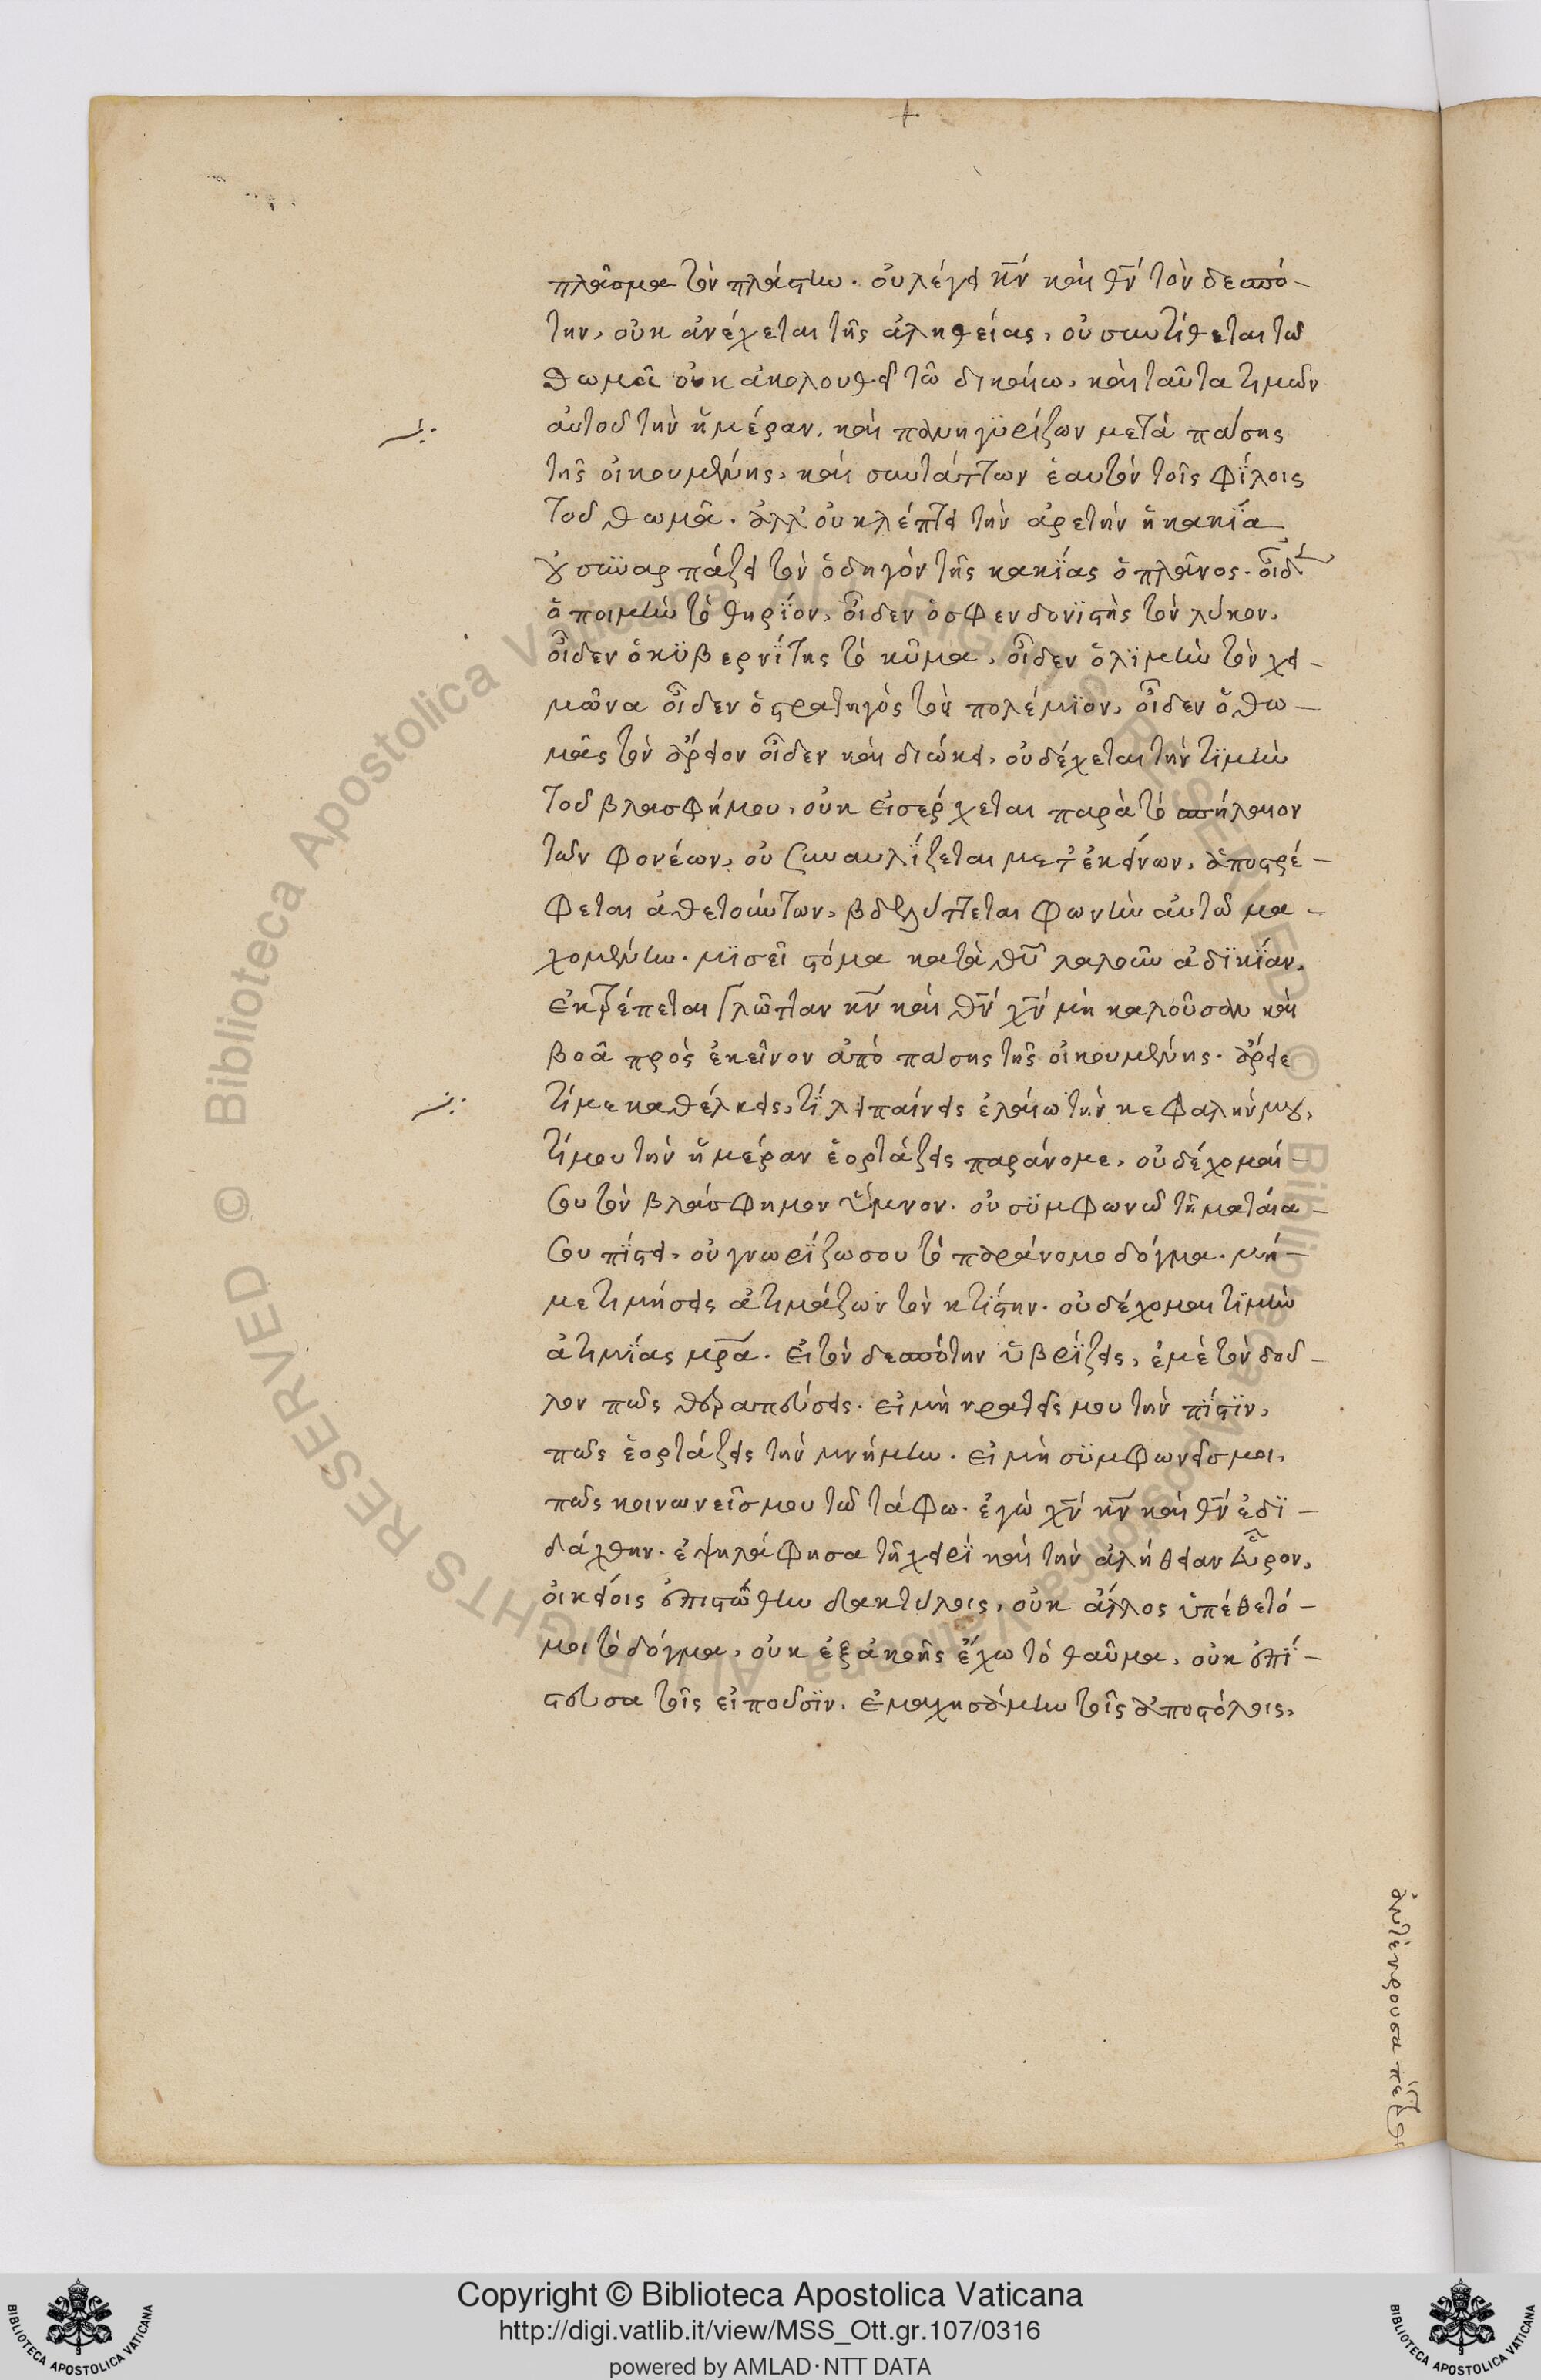 πλᾶσμα τὸν πλάστην. οὐ λέγει κν̅ καὶ θν̅ τὸν δεσπό-
την, οὐκ ἀνέχεται τῆς ἀληθείας, οὐ συντίθεται τῶ
θωμᾶ οὐκ ἀκολουθεῖ τῶ δικαίω, καὶ ταῦτα τιμῶν
αὐτοῦ τὴν ἡμέραν, καὶ πανηγϋρίζων μετὰ πάσης
τῆς οἰκουμένης, καὶ συντάττων ἑαυτὸν τοῖς φΐλοις
τοῦ θωμᾶ. ἀλλ' οὐ κλέπτει τὴν ἀρετὴν ἡ κακΐα
οὐ συναρπάζει τὸν ὁδηγὸν τῆς κακΐας ὁ πλᾶνος. οἶδεν
ὁ ποιμὴν τὸ θηρΐον, οἶδεν ὁ σφενδονϊστὴς τὸν λύκον,
οἶδεν ὁ κϋβερνΐτης τὸ κῦμα, οἶδεν ὁ λϊμὴν τὸν χει-
μῶνα οἶδεν ὁ στρατηγὸς τὸν πολέμϊον, οἶδεν ὁ θω-
μᾶς τὸν ἄρειον οἶδεν καὶ διώκει, οὐ δέχεται τὴν τϊμὴν
τοῦ βλασφήμου, οὐκ εἰσέρχεται παρὰ τὸ σπήλαιον
τῶν φονέων, οὐ συναυλΐζεται μετ' ἐκείνων, ἀποστρέ-
φεται ἀθετούντων, βδελύττεται φωνὴν αὐτῶ μα-
χομένην. μϊσεῖ στόμα κατὰ θυ̅ λαλοῦν ἀδϊκΐαν,
ἐκτρέπεται γλῶτταν κν̅ καὶ θν̅ χν̅ μὴ καλοῦσαν καὶ
βοᾶ πρὸς ἐκεῖνον ἀπὸ πάσης τῆς οἰκουμένης. ἄρειε
τί με καθέλκεις, τΐ λειπαίνεις ἐλαίω τὴν κεφαλήν μου,
τί μου τὴν ἡμέραν ἑορτάζεις παράνομε, οὐ δέχομαί-
σου τὸν βλάσφημον ὕμνον. οὐ σϋμφωνῶ τῆ ματαία-
σου πΐστει, οὐ γνωρΐζω σου τὸ παράνομο δόγμα. μή-
με τιμήσεις ἀτιμάζων τὸν κτΐστην. οὐ δέχομαι τϊμὴν
ἀτιμΐας μρ̅α. εἰ τὸν δεσπότην ὑβρΐζεις, ἐμὲ τὸν δοῦ-
λον πῶς θεραπεύσεις. εἰ μὴ κρατεῖς μου τὴν πΐστϊν,
πῶς ἑορτάζεις τὴν μνήμην. εἰ μὴ σϋμφωνεῖς μοι,
πῶς κοινωνεῖς μου τῶ τάφω. ἐγὼ χν̅ κν̅ καὶ θν̅ ἐδϊ-
δάχθην. ἐψηλάφησα τῆ χειρΐ καὶ τὴν ἀλήθειαν εὗρον,
οἰκείοις ἐπιστώθην δακτύλοις, οὐκ ἄλλος ὑπέθετό-
μοι τὸ δόγμα, οὐκ ἐξ ἀκοῆς ἔχω τὸ θαῦμα, οὐκ ἐπΐ-
στευσα τοῖς εἰποῦσϊν. ἐμαχησάμην τοῖς ἀποστόλοις,
Copyright © Biblioteca Apostolica Vaticana
http://digi.vatlib.it/view/MSS_Ott.gr.107/0316
powered by AMLAD·NTT DATA